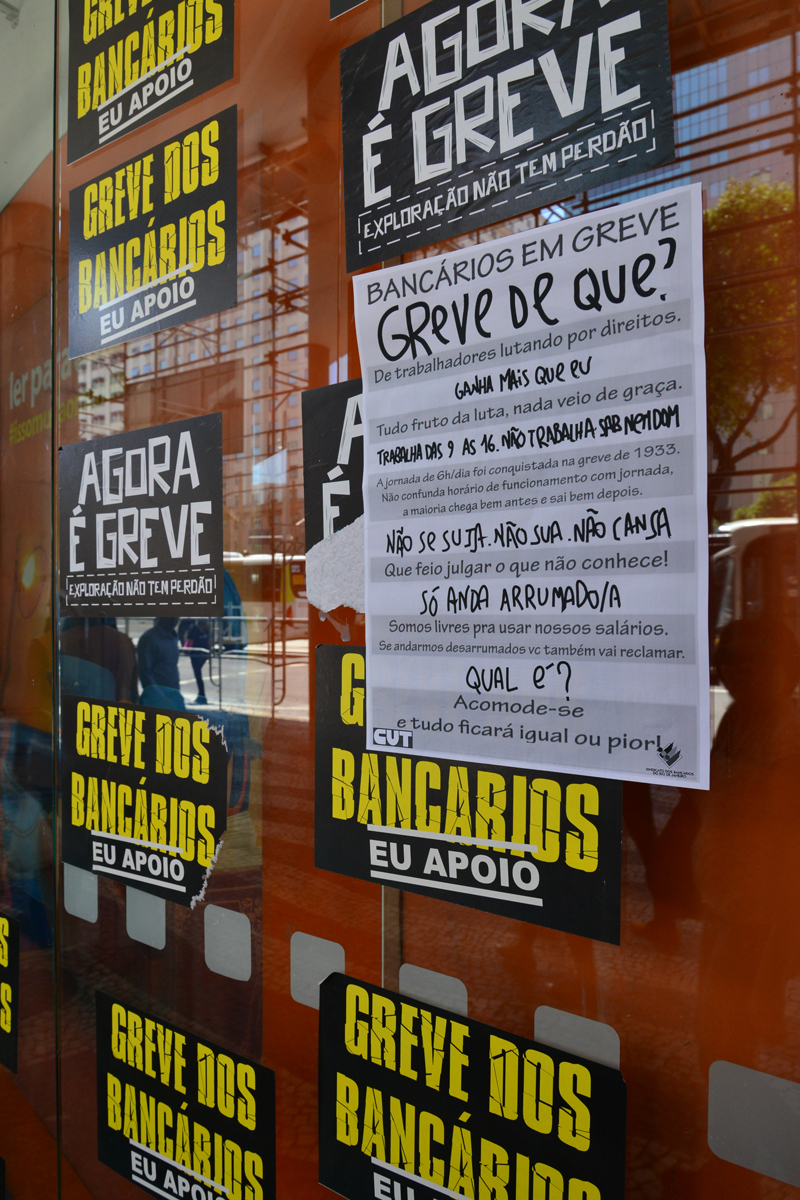 GREVE DOS
BANCÁRIOS
EU APOIO
GREVE DOS
BANCÁRIOS
EU APOIO
AGORA
É GREVE
EXPLORAÇÃO NÃO TEM PERDÃO
BANCÁRIOS EM GREVE
GREVE DE QUE?
De trabalhadores lutando por direitos.
GANHA MAIS QUE EU
Tudo fruto da luta, nada veio de graça.
TRABALHA DAS 9 AS 16. NÃO TRABALHA SAB NEM DOM
A jornada de 6h/dia foi conquistada na greve de 1933.
Não confunda horário de funcionamento com jornada,
a maioria chega bem antes e sai bem depois.
NÃO SE SUJA. NÃO SUA. NÃO CANSA
Que feio julgar o que não conhece!
SÓ ANDA ARRUMADO/A
Somos livres pra usar nossos salários.
Se andarmos desarrumados vc também vai reclamar.
QUAL É?
Acomode-se
e tudo ficará igual ou pior!
CUT
SINDICATO DOS BANCÁRIOS
DO RIO DE JANEIRO
ler para
#issomu
AGORA
É GREVE
EXPLORAÇÃO NÃO TEM PERDÃO
A
É
GREVE DOS
BANCÁRIOS
EU APOIO
G
BANCÁRIOS
EU APOIO
S
S
GREVE DOS
BANCÁRIOS
EU APOIO
GREVE DOS
BANCÁRIOS
EU